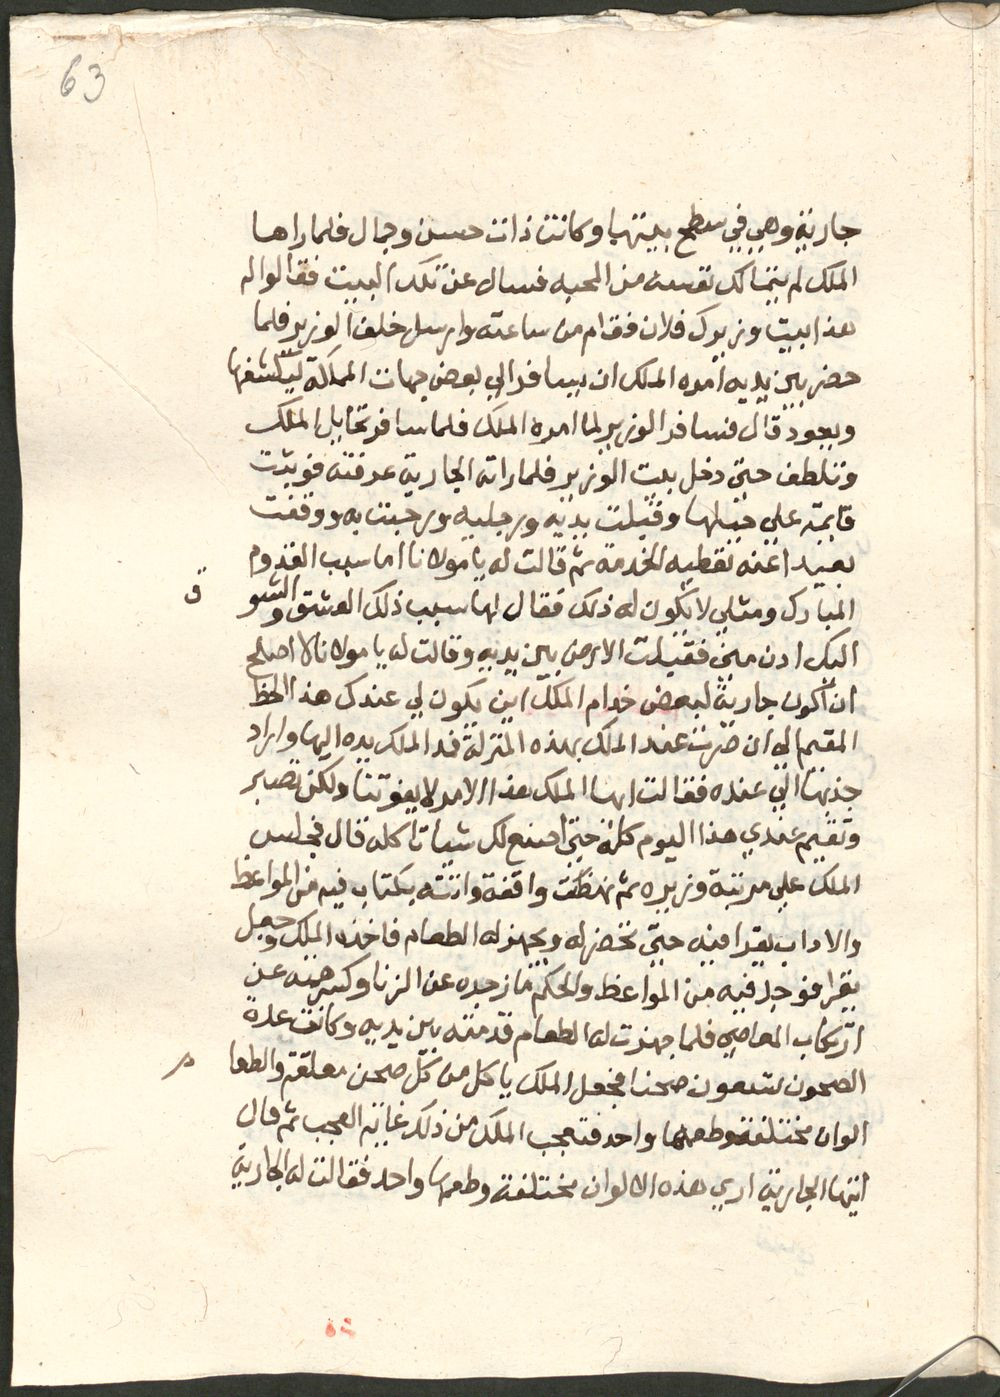 63
جارية وهي في سطح بيتها وكانت ذات حسن وجمال فلما راها
الملك لم يتمالك نفسه من المحبه فسال عن تلك البيت فقالوا له
هذا بيت وزيرك فلان فقام من ساعته وارسل خلف الوزير فلما
حضر بين يديه امره الملك ان يسافر الي بعض جهات المملكة ليكشفها
ويعود قال فسافر الوزير لما امره الملك فلما سافر تحايل الملك
وتلطف حتي دخل بيت الوزير فلما راته الجارية عرفته فوثبت
قايمة علي حيلها وقبلت يديه ورجليه ورحبت به ووقفت
بعيدا عنه تعطيه الخدمة ثم قالت له يا مولانا ما سبب القدوم
المبارك ومثلي لا يكون له ذلك فقال لها سبب ذلك العشق والشو
ق
اليك ادن مني فقبلت الارض بين يديه وقالت له يا مولانا لا اصلح
ان اكون جارية لبعض خدام الملك اين يكون لي عندك هذا الحظ
المقيم الي ان صرت عند الملك بهذه المنزلة فمد الملك يده اليها واراد
جذبها الي عنده فقالت ايها الملك هذا الامر لا يفوتنا ولكن تصبر
وتقيم عندي هذا اليوم كله حتي اصنع لك شيا تاكله قال فجلس
الملك علي مرتبة وزيره ثم نهظت واقفة واتته بكتاب فيه من المواعظ
والاداب يقرا فيه حتي تحضر له ويجهز له الطعام فاخذه الملك وجعل
يقرا فوجد فيه من المواعظ والحكم ما زجره عن الزنا وكسر همته عن
ارتكاب المعاصي فلما جهزت له الطعام قدمته بين يديه وكانت عدة
الصحون تسعون صحنا فجعل الملك ياكل من كل صحن معلقة والطعا
م
الوان مختلفة وطعمها واحد فتعجب الملك من ذلك غاية العجب ثم قال
ايتها الجارية اري هذه الالوان مختلفة وطعمها واحد فقالت له الجارية